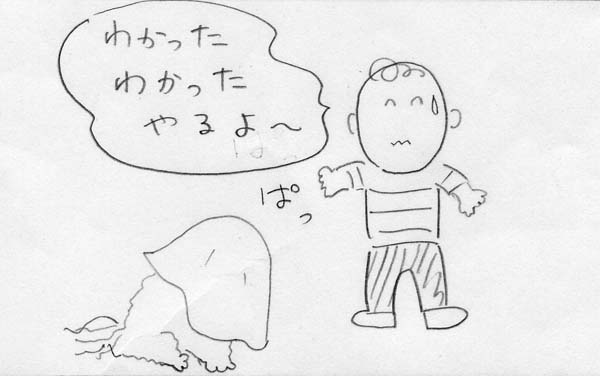 わかった
わかった
やるよ〜
ぱっ